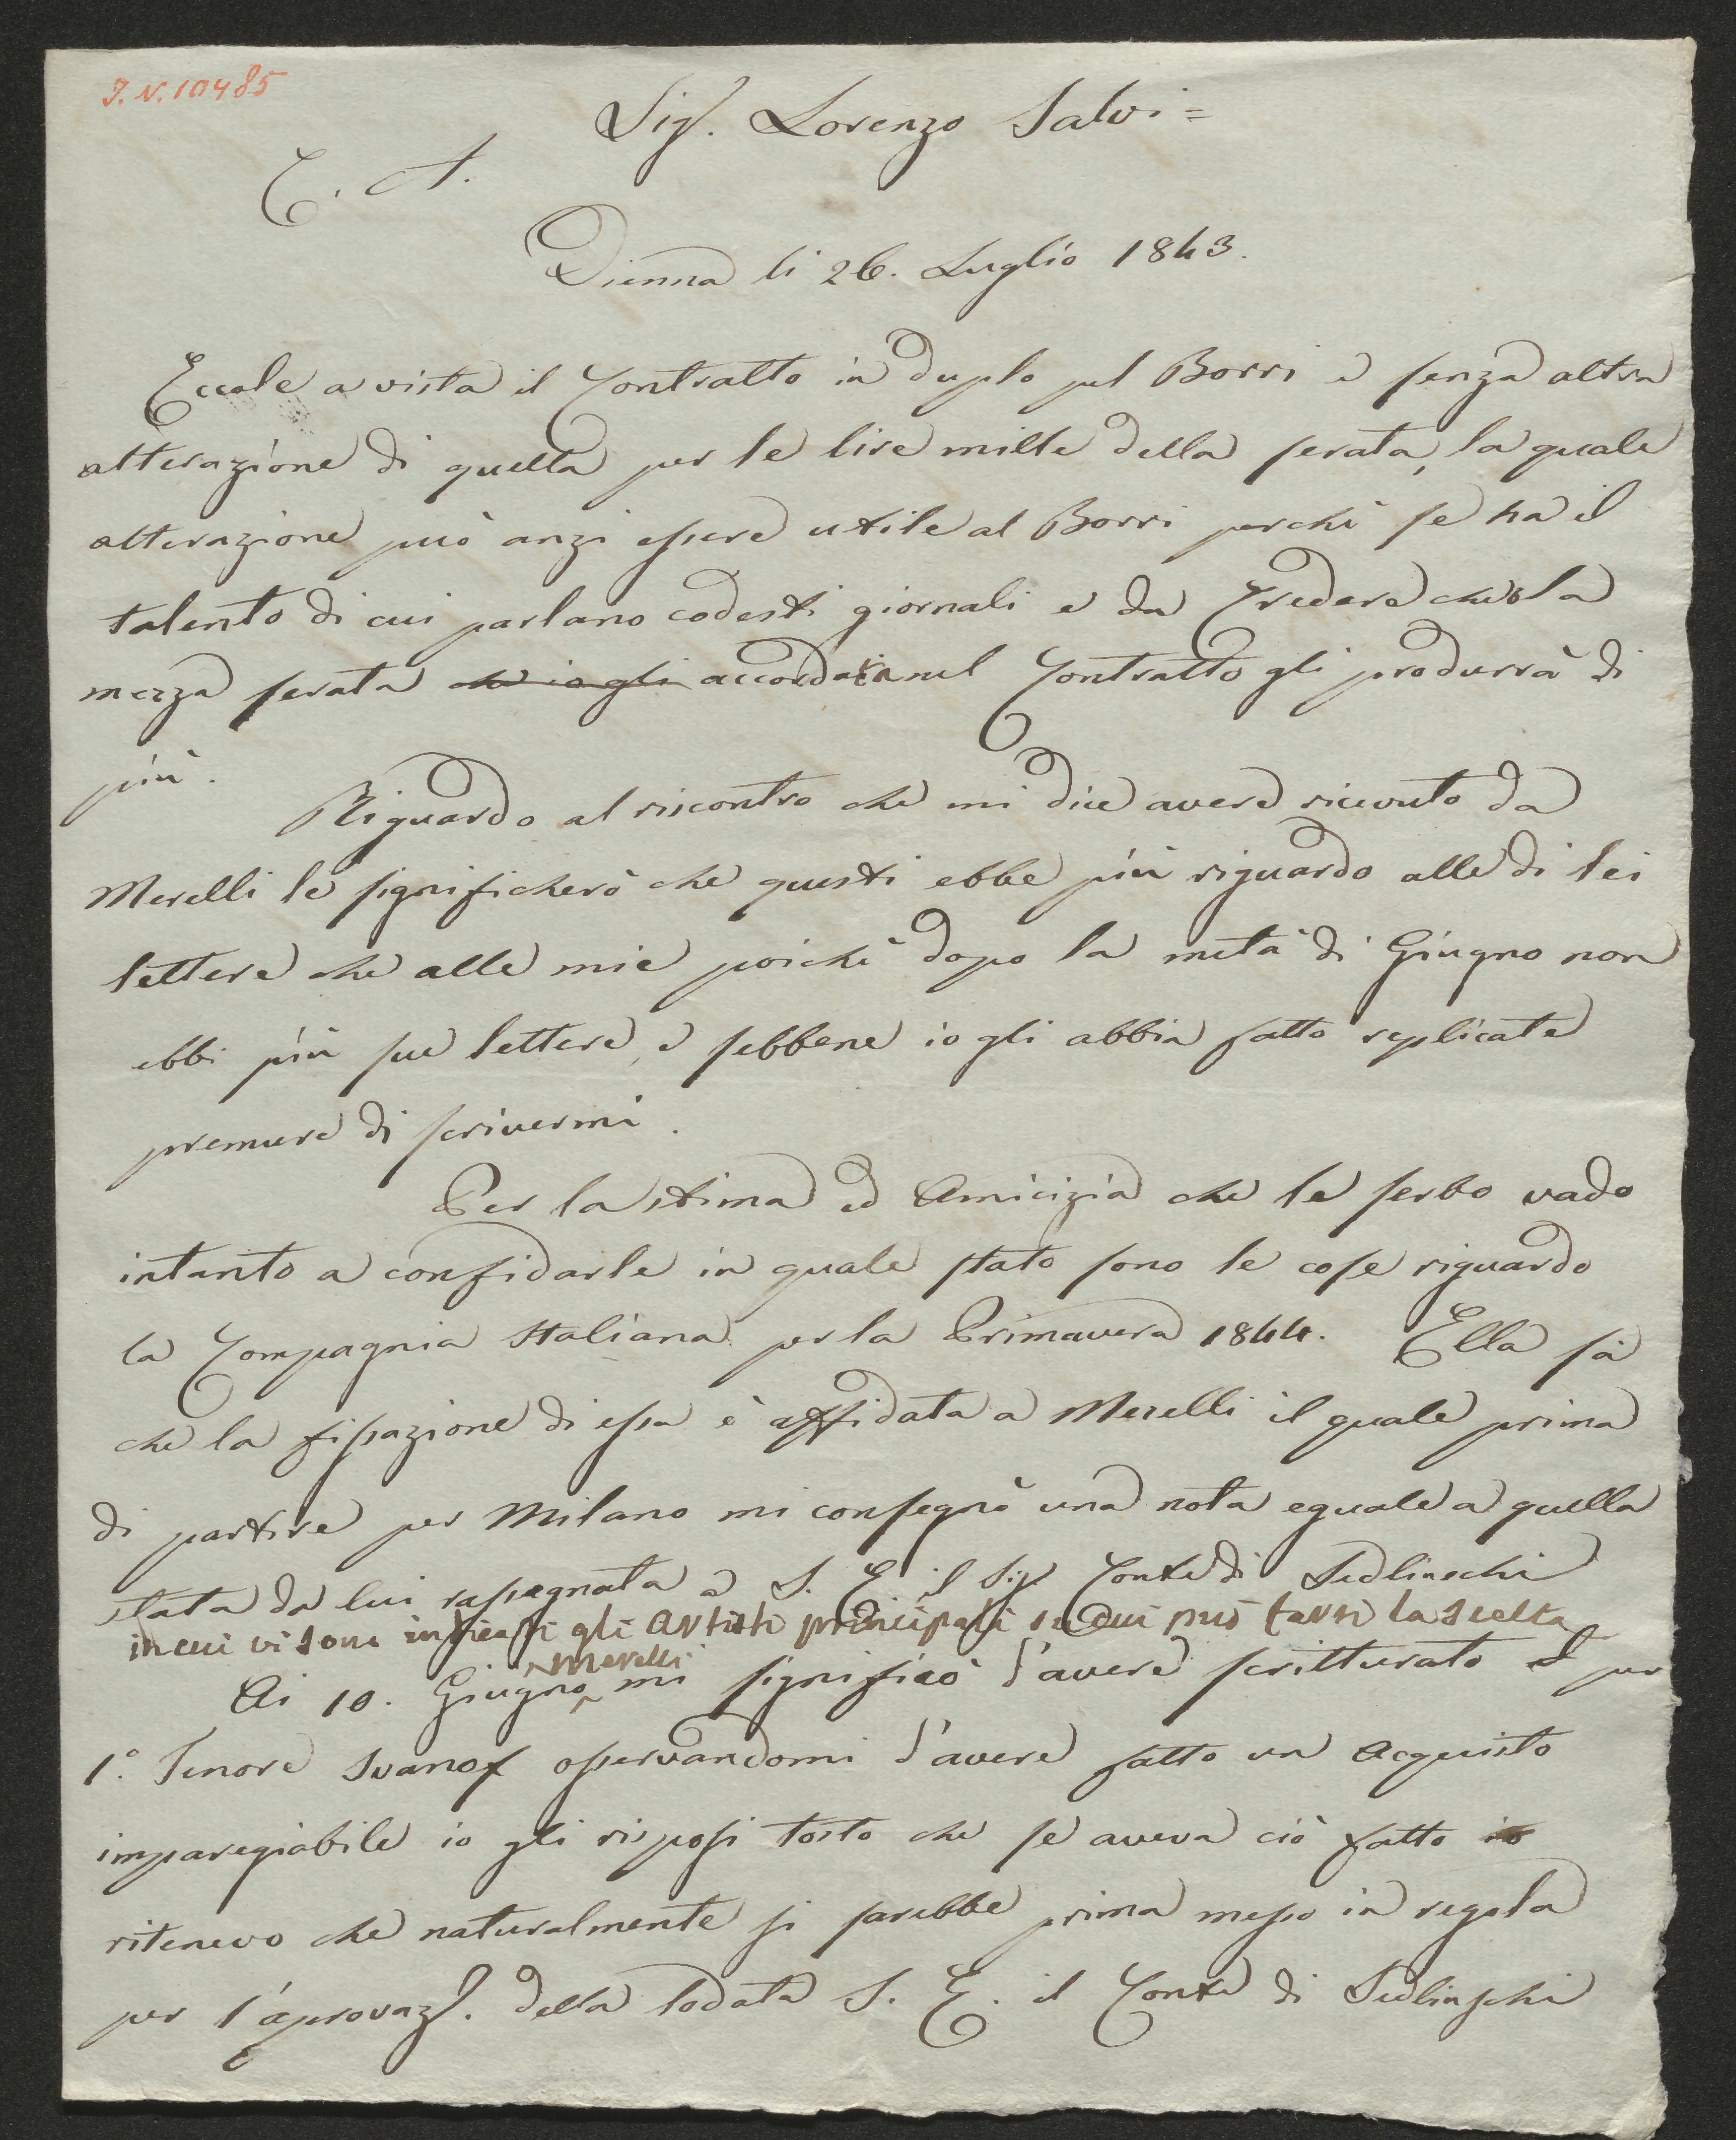 I. N. 10485
Sigr. Lorenzo Salvi =
C. A.
Vienna li 26. Luglio 1843.
Eccole a vista il Contratto in duplo pel Borri e senza altra
alterazione di quella per le lire mille della serata, la quale
alterazione può anzi essere utile al Borri perchè se ha il
talento di cui parlano codesti giornali e da credere che la
mezza serata che io gli accordata nel Contratto gli produrrà di
più.
Riguardo al riscontro che mi dice avere ricevuto da
Merelli le significherò che questi ebbe più riguardo alle di lei
lettere che alle mie poichè dopo la metà di Giugno non
ebbi più sue lettere, e sebbene io gli abbia fatto replicate
premure di scrivermi.
Per la stima ed Amicizia che le serbo vado
intanto a confidarle in quale stato sono le cose riguardo
la Compagnia Italiana per la Primavera 1844. Ella sà
che la fissazione di essa è affidata a Merelli il quale prima
di partire per Milano mi consegnò una nota eguale a quella
stata da lui rassegnata a S. E. il Sigr Conte di Sedlinschi
in cui vi sono indicati gli Artisti principali su cui può farsi la scelta
Merelli
Ai 10. Giugno mi significò d'avere scritturato per
1º. Tenore Ivanof osservandomi d'avere fatto un Acquisto
imparegiabile io gli risposi tosto che se aveva ciò fatto io
ritenevo che naturalmente si sarebbe prima messo in regola
per l'aprovaz. della lodata S. E. il Conte di Sedlinschi